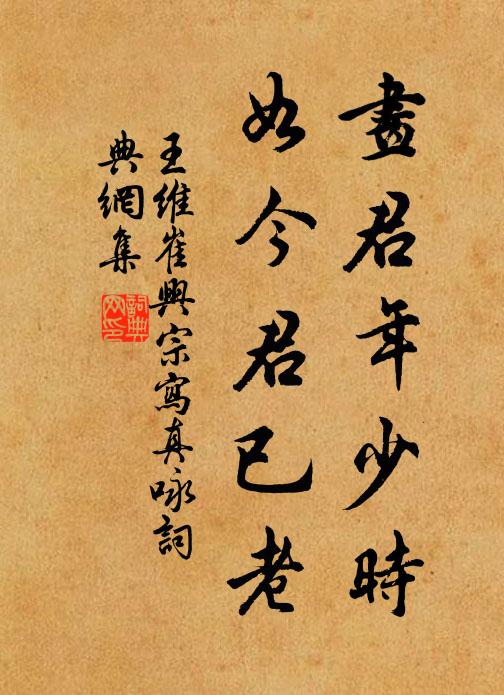 畫君年少時
如今君已老
王維崔興宗寫真咏詞
典網集
詞典
网印